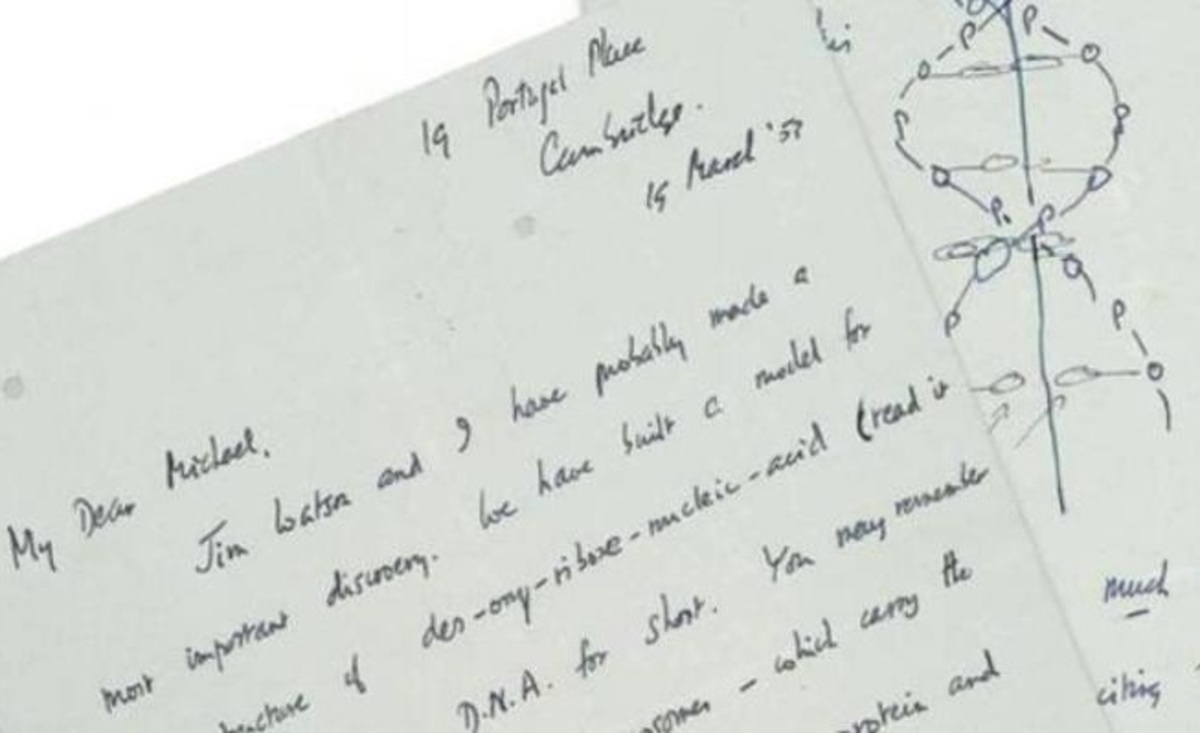 19 Portugal Place
Cambridge.
19 March '53
My Dear Michael,
Jim Watson and I have probably made a
most important discovery. We have built a model for
structure of des-oxy-ribose-nucleic-acid (read it
D.N.A. for short. You may remember
– which carry the
protein and
P P
P P
P P
P P
much
citing